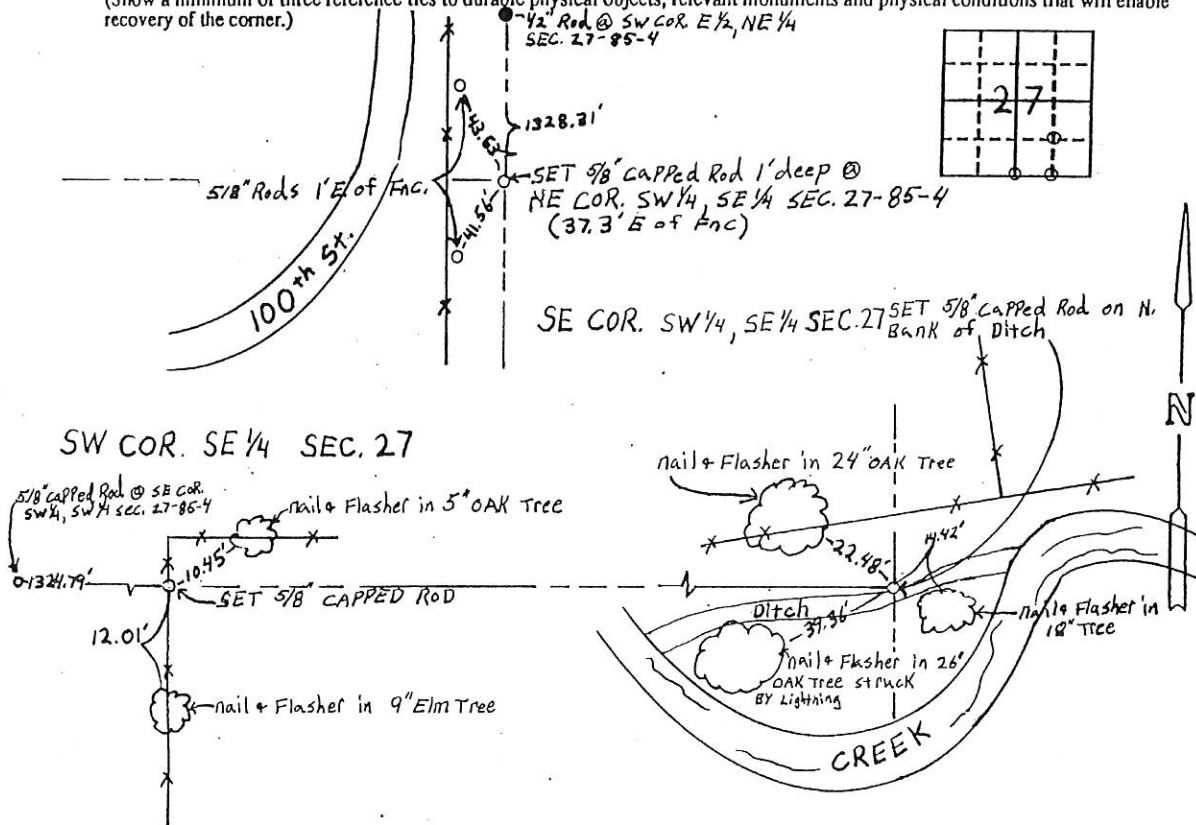 (Show a minimum of three reference ties to durable physical objects, relevant monuments and physical conditions that will enable
recovery of the corner.)
1/2" Rod @ SW COR E 1/2, NE 1/4
SEC. 27-85-4
27
43.63
1328.31'
5/8" Rods 1' E of Fnc.
SET 5/8" CAPPed Rod 1' deep @
NE COR. SW 1/4, SE 1/4 SEC. 27-85-4
(37.3' E of Fnc)
41.56'
100th St.
SE COR. SW 1/4, SE 1/4 SEC. 27
SET 5/8" CAPPed Rod on N.
Bank of Ditch
N
SW COR. SE 1/4 SEC. 27
5/8" CAPPed Rod @ SE COR.
SW 1/4, SW 1/4 SEC. 27-85-4
nail & Flasher in 5" OAK Tree
10.45'
1324.79'
SET 5/8" CAPPED ROD
12.01'
nail & Flasher in 9" Elm Tree
nail & Flasher in 24" OAK Tree
22.48'
14.42'
Ditch
39.36'
nail & Flasher in
18" Tree
nail & Flasher in 26"
OAK Tree struck
BY Lightning
CREEK